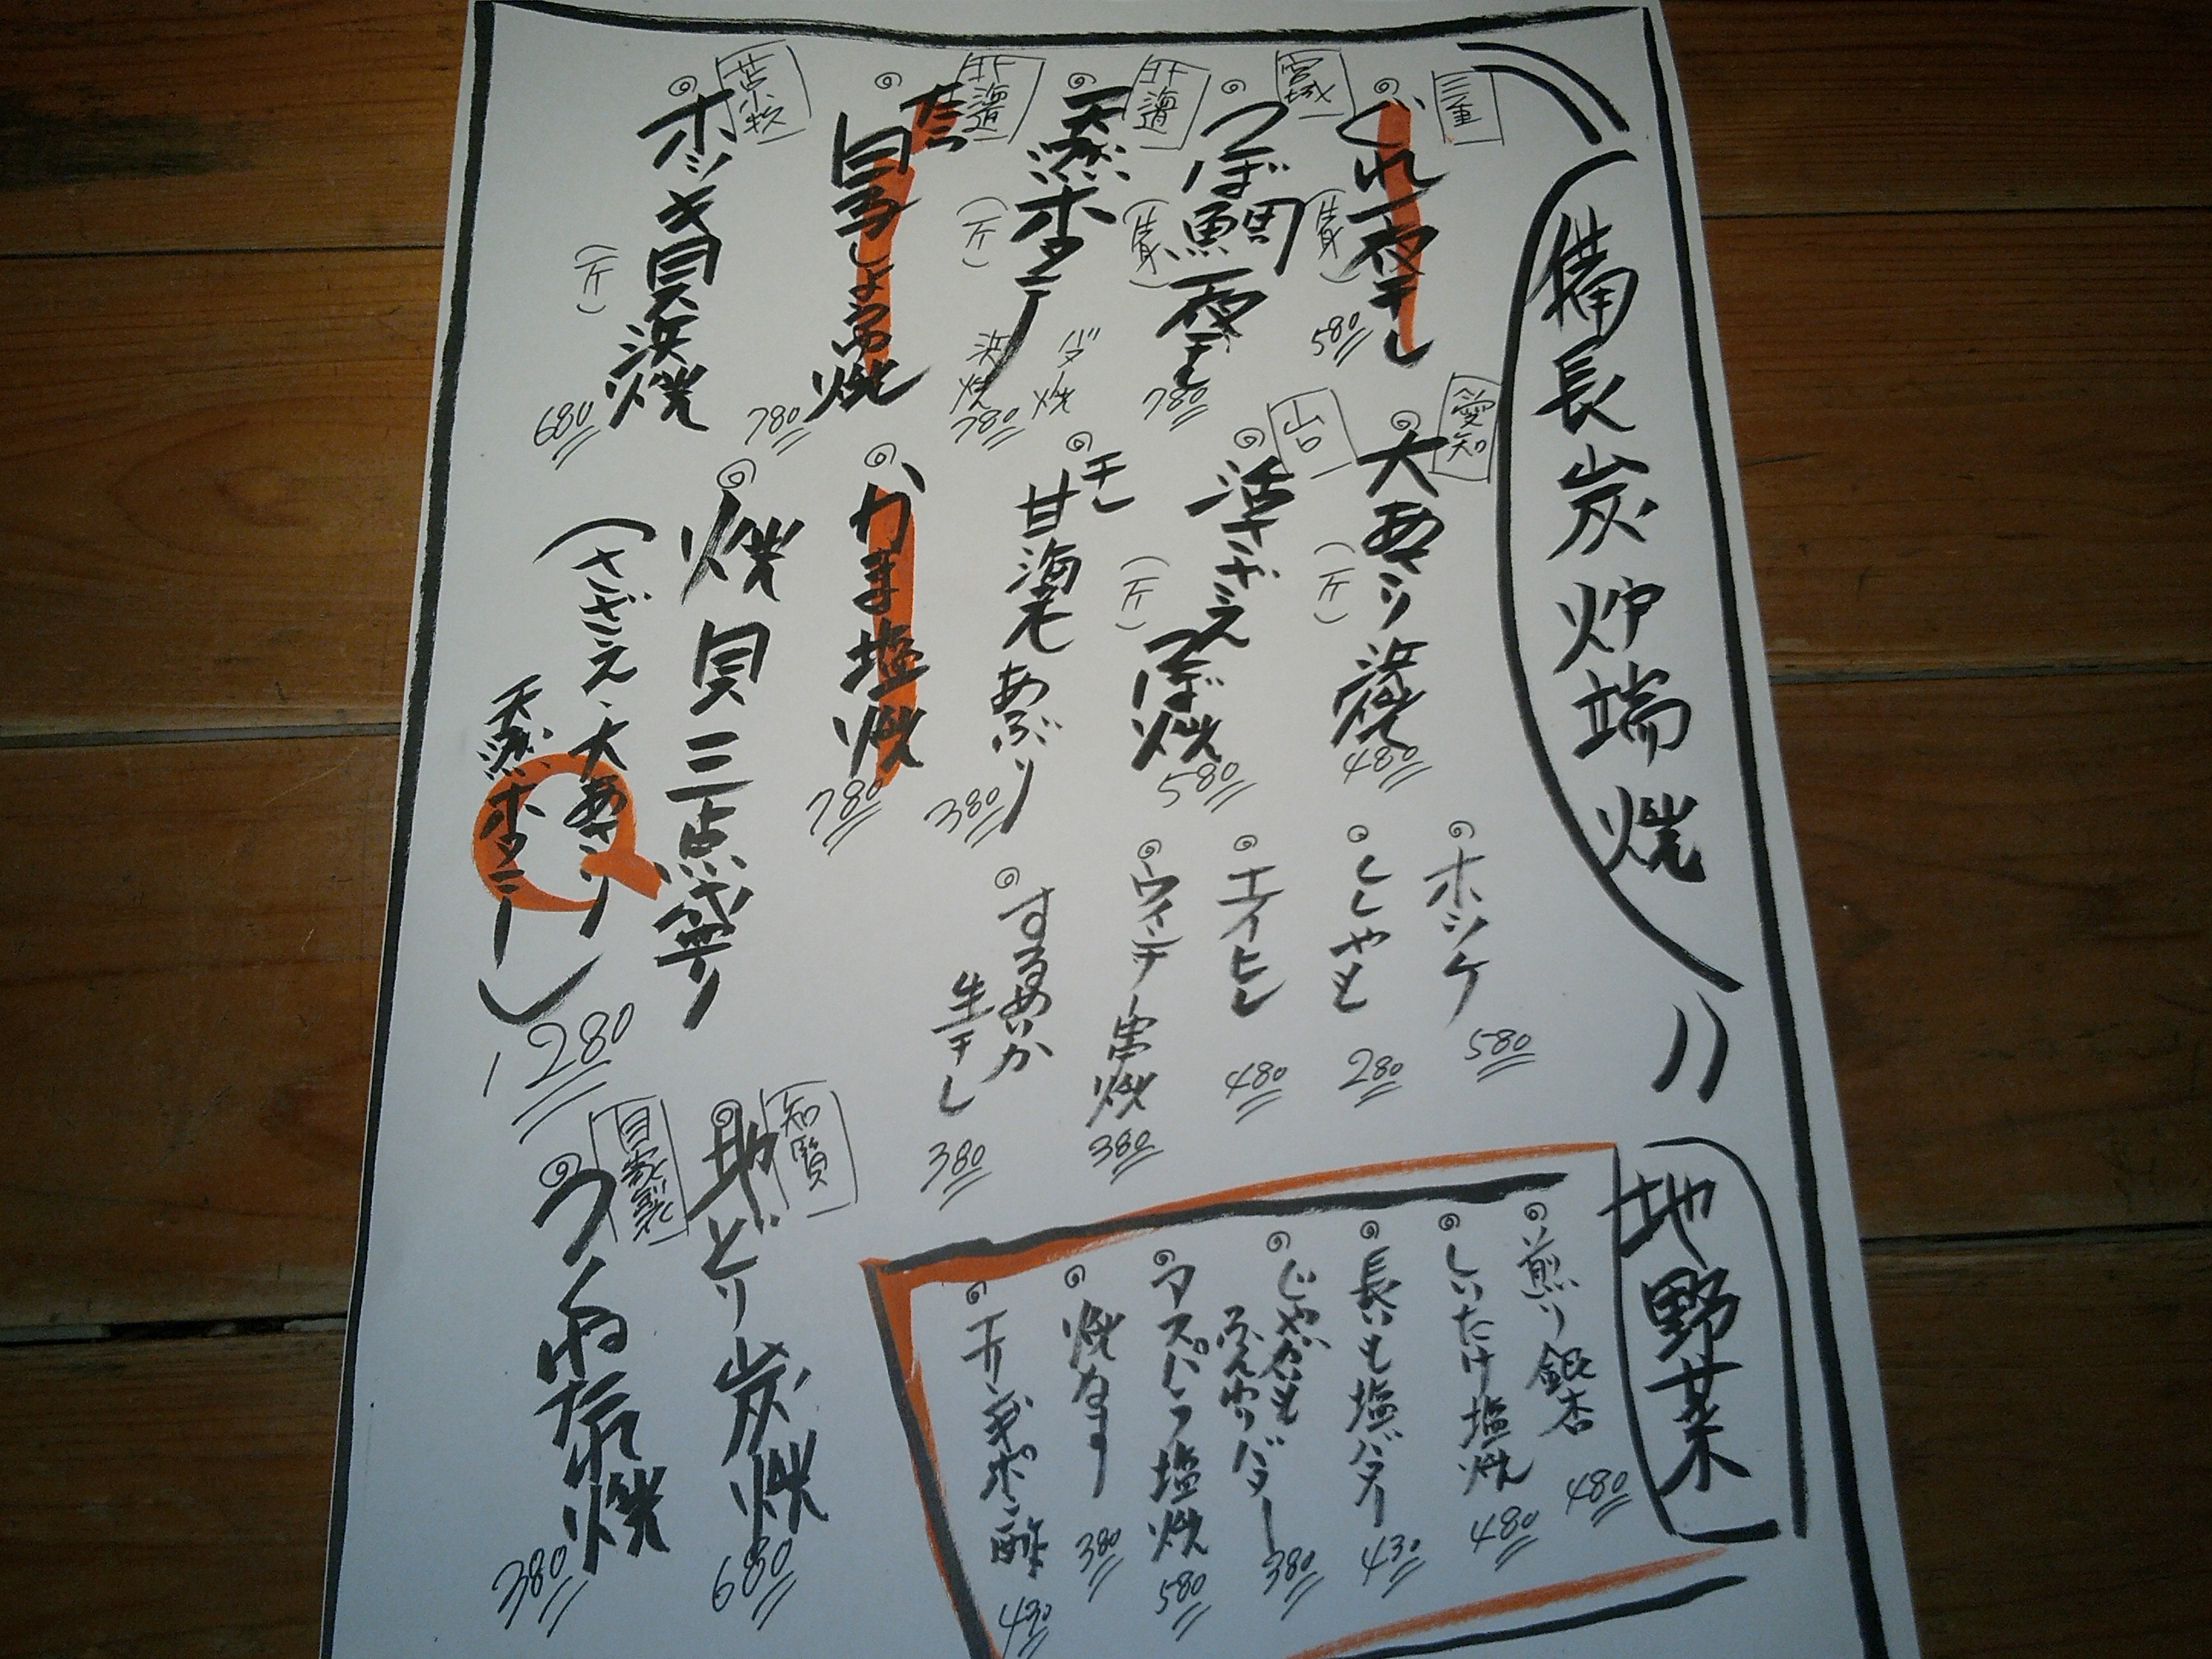 備長炭炉端焼
三重
ぐれ一夜干し
580
宮城
つぼ鯛一夜干し
780
北海道
天然ホタテ
バタ焼
浜焼
780
北海道
たら
白子しょうゆ焼
780
苫小牧
ホッキ貝浜焼
680
愛知
大あさり浜焼
480
山口
活さざえつぼ焼
580
干し
甘海老あぶり
380
かま塩焼
780
焼貝三点盛り
(さざえ・大あさり
天然ホタテ)
1280
ホッケ
580
ししゃも
280
エイヒレ
480
ウィンナー串焼
380
するめいか
生干し
380
知覧
地どり炭焼
680
自家製
つくね炭焼
380
地野菜
煎り銀杏
480
しいたけ塩焼
480
長いも塩バター
430
じゃがいも
ふんわりバター
380
アスパラ塩焼
580
焼なす
380
エリンギポン酢
430